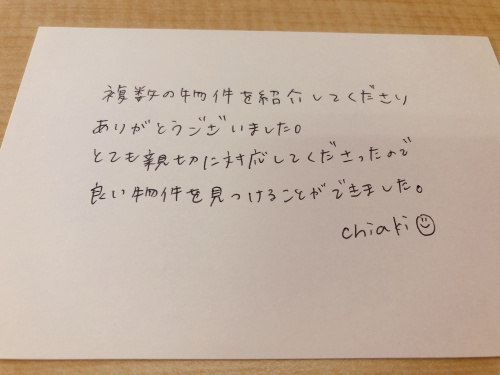 複数の物件を紹介してくださり
ありがとうございました。
とても親切に対応してくださったので
良い物件を見つけることができました。
chiaki☺